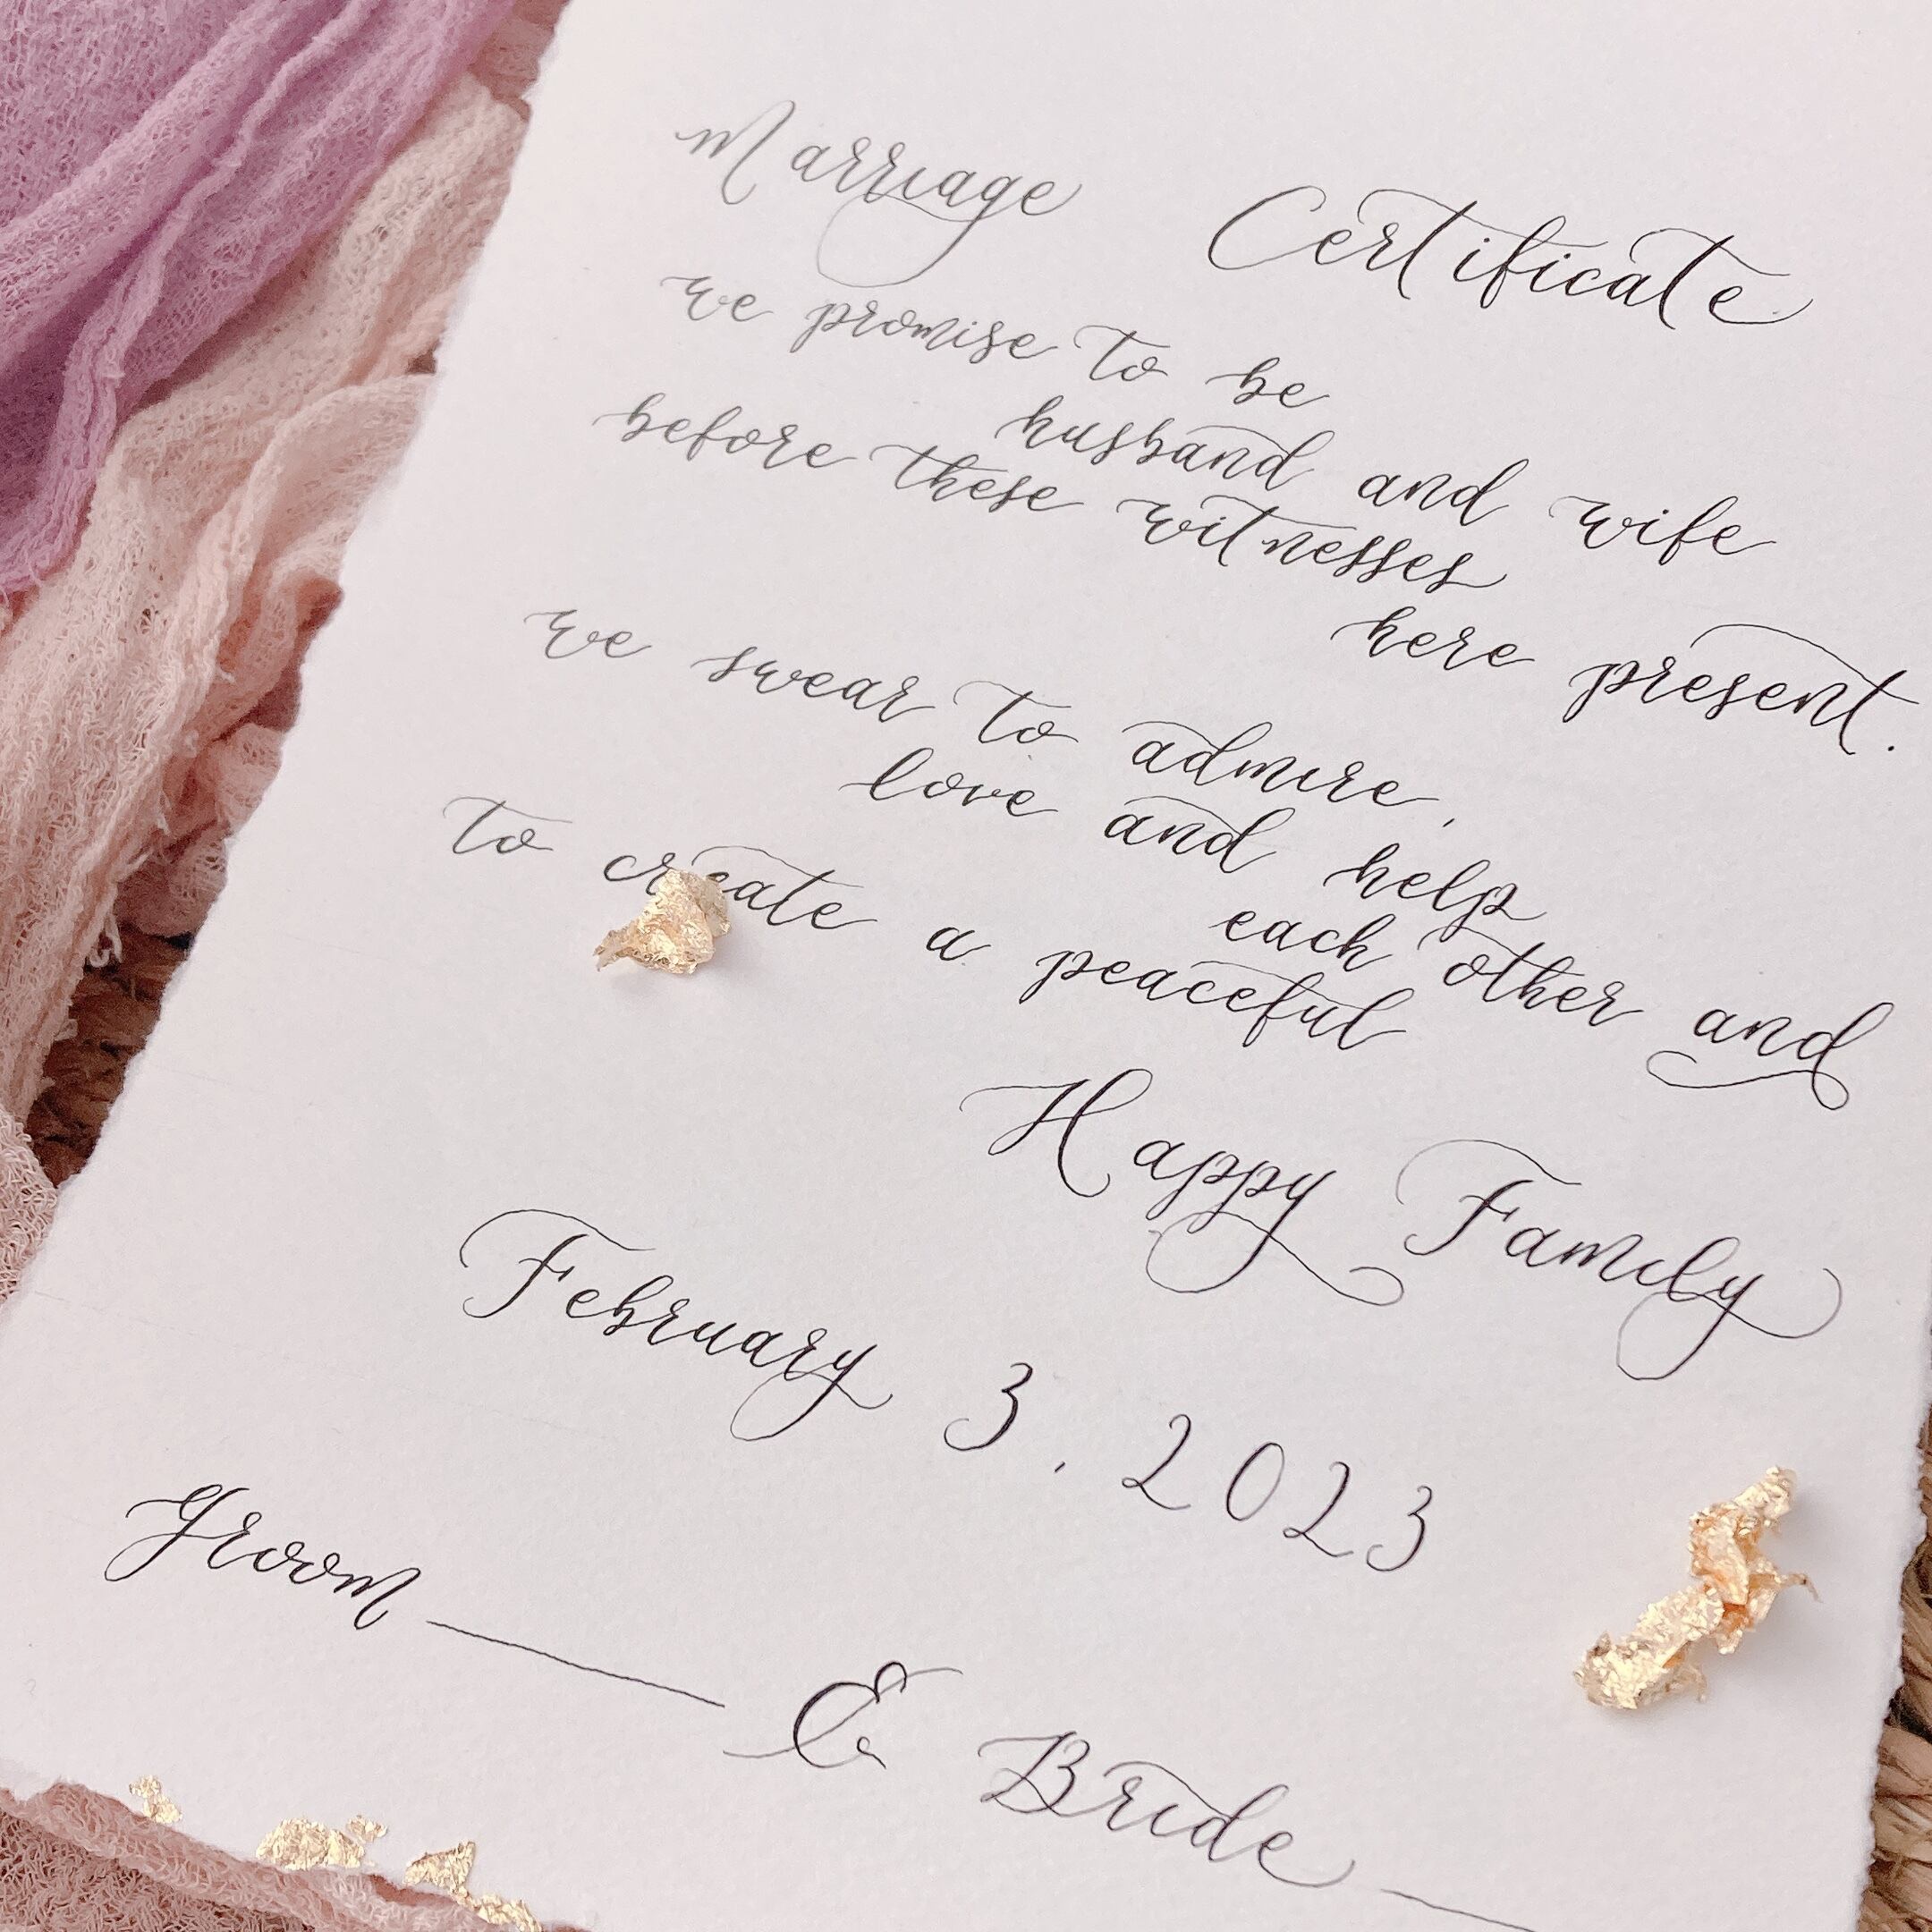 Marriage Certificate
we promise to be
husband and wife
before these witnesses
here present.
we swear to admire,
love and help
each other and
to create a peaceful
Happy Family
February 3, 2023
Groom
& Bride